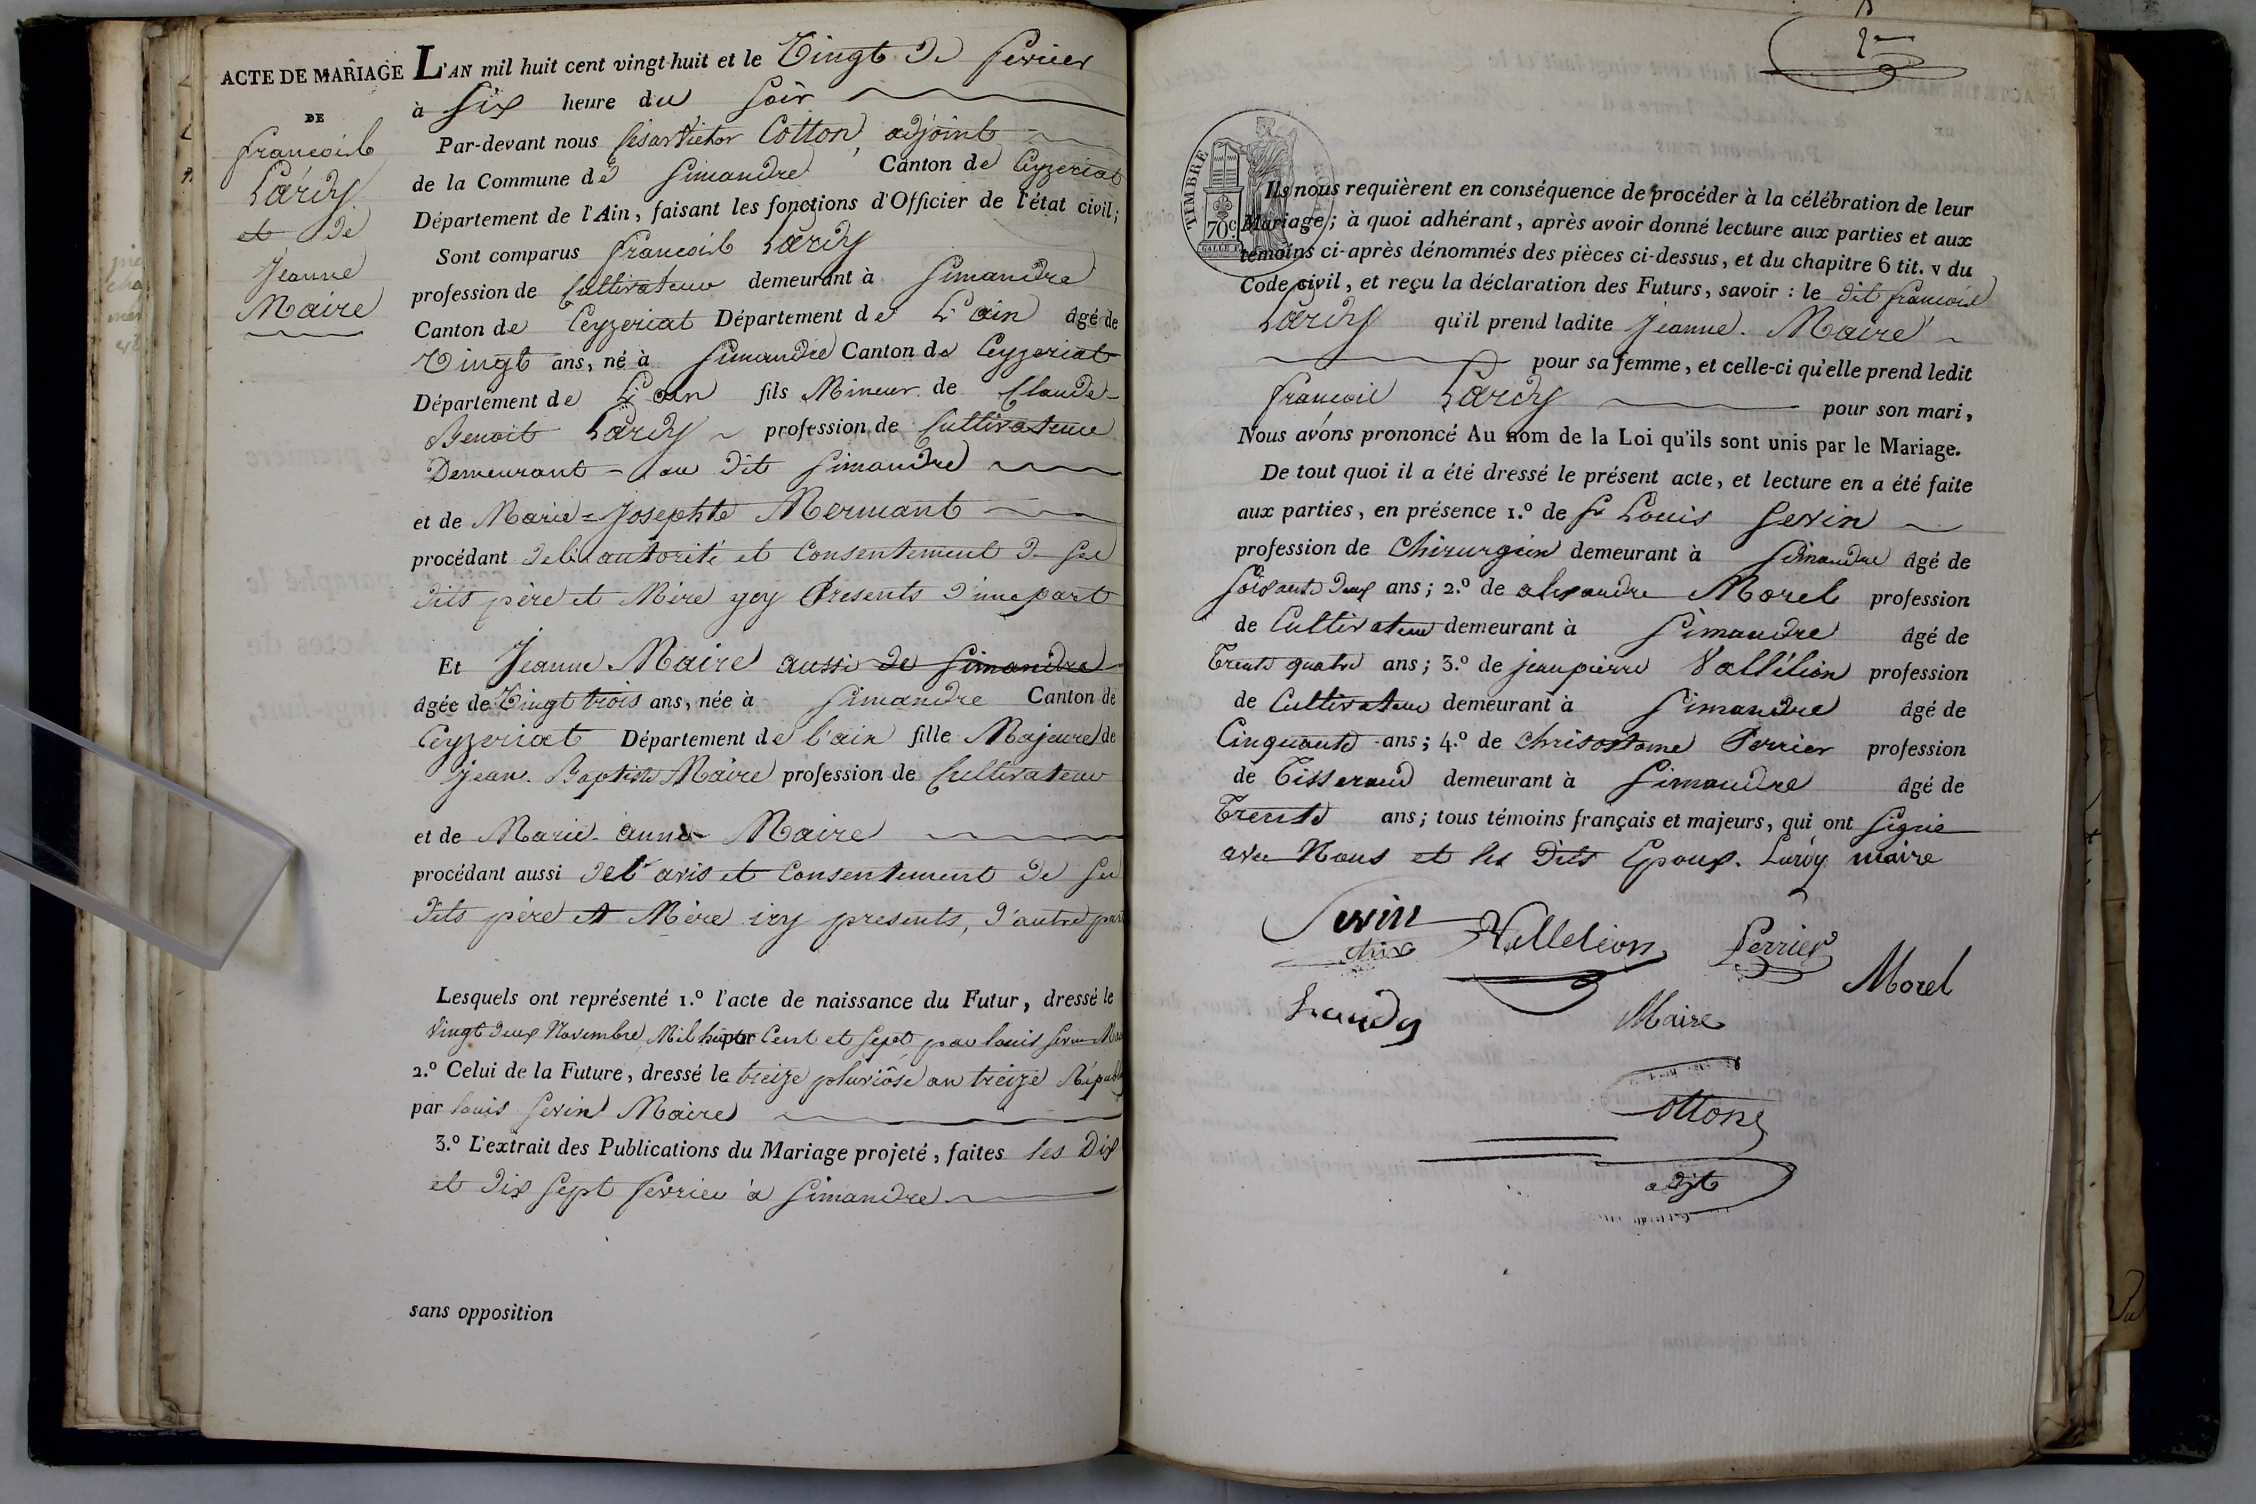 ACTE DE MARIAGE
DE
françoils
Lardy
et de
Jeanne
Maire
L'AN mil huit cent vingt-huit et le Vingt de fevrier
à Six heure du Soir
Par-devant nous César Victor Cotton, adjoint
de la Commune de Simandre Canton de Ceyzeriat
Département de l'Ain, faisant les fonctions d'Officier de l'état civil;
Sont comparus françois Lardy
profession de Cultivateur demeurant à Simandre
Canton de Ceyzeriat Département de L'ain âgé de
Vingt ans, né à Simandre Canton de Ceyzeriat
Département de L'ain fils Mineur de Claude
Benoit Lardy profession de Cultivateur
Demeurant au dit Simandre
et de Marie-Josephte Mermant
procédant de l'autorité et Consentement de ses
dits père et Mère ycy Présents d'une part
Et Jeanne Maire aussi de Simandre
âgée de Vingt trois ans, née à Simandre Canton de
Ceyzeriat Département de l'ain fille Majeure de
Jean-Baptiste Maire profession de Cultivateur
et de Marie-anne Maire
procédant aussi de l'avis et Consentement de ses
dits père et Mère icy presents, d'autre part
Lesquels ont représenté 1.º l'acte de naissance du Futur, dressé le
Vingt deux Novembre Mil huit Cent et Sept par louis Sevin
2.º Celui de la Future, dressé le treize pluviôse an treize
par louis Sevin Maire
3.º L'extrait des Publications du Mariage projeté, faites les Dix
et dix Sept fevrier à Simandre
sans opposition
TIMBRE
ROYAL
70c
Ils nous requièrent en conséquence de procéder à la célébration de leur
Mariage; à quoi adhérant, après avoir donné lecture aux parties et aux
témoins ci-après dénommés des pièces ci-dessus, et du chapitre 6 tit. v du
Code civil, et reçu la déclaration des Futurs, savoir : le dit françois
Lardy qu'il prend ladite Jeanne Maire
pour sa femme, et celle-ci qu'elle prend ledit
françois Lardy pour son mari,
Nous avons prononcé Au nom de la Loi qu'ils sont unis par le Mariage.
De tout quoi il a été dressé le présent acte, et lecture en a été faite
aux parties, en présence 1.º de Sr Louis Sevin
profession de Chirurgien demeurant à Simandre âgé de
Soixante deux ans; 2.º de alexandre Morel profession
de Cultivateur demeurant à Simandre âgé de
Trente quatre ans; 3.º de jean pierre Vallélion profession
de Cultivateur demeurant à Simandre âgé de
Cinquante ans; 4.º de Chrisostome Perrier profession
de Tisserand demeurant à Simandre âgé de
Trente ans; tous témoins français et majeurs, qui ont Signé
avec Nous et les dits Epoux. Lardy maire
Sevin
chir
Vallelion
Perrier
Morel
Maire
Cotton
adjt